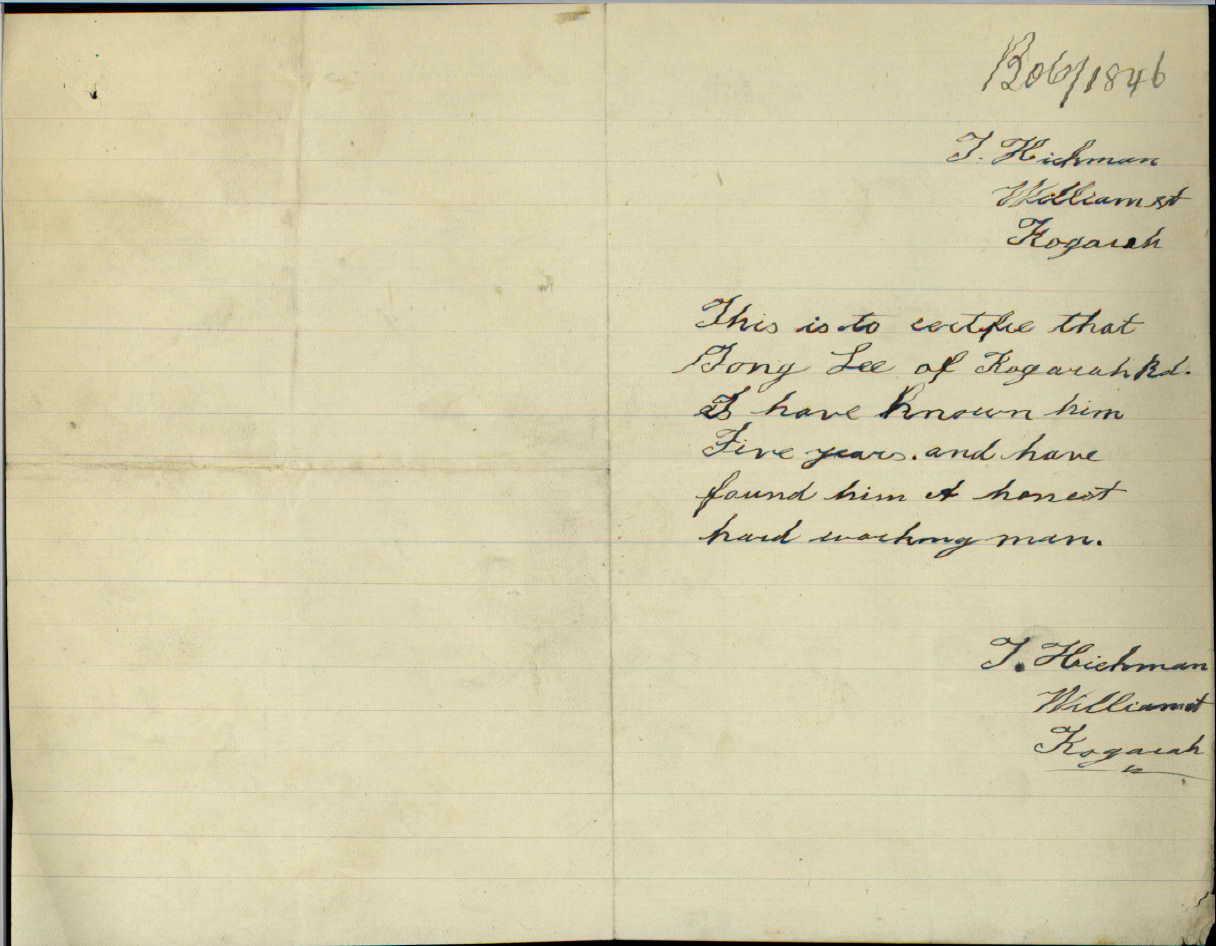 B06/1846
T. Hickman
William st
Kogarah
This is to certfie that
Tong Lee of Kogarah Rd.
I have Known him
Five years. and have
found him A honest
hard working man.
T. Hickman
William st
Kogarah